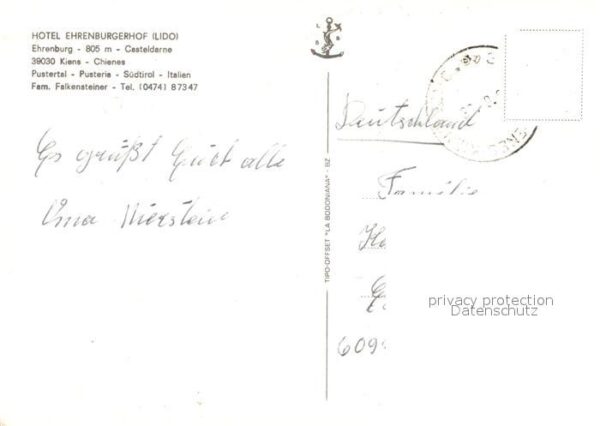 HOTEL EHRENBURGERHOF (LIDO)
Ehrenburg - 805 m - Casteldarne
39030 Kiens - Chienes
Pustertal - Pusteria - Südtirol - Italien
Fam. Falkensteiner - Tel. (0474) 87347
Es grüßt Euch alle
Oma Nierstein
TIPO-OFFSET "LA BODONIANA" - BZ
Deutschland
Familie
privacy protection
Datenschutz
609